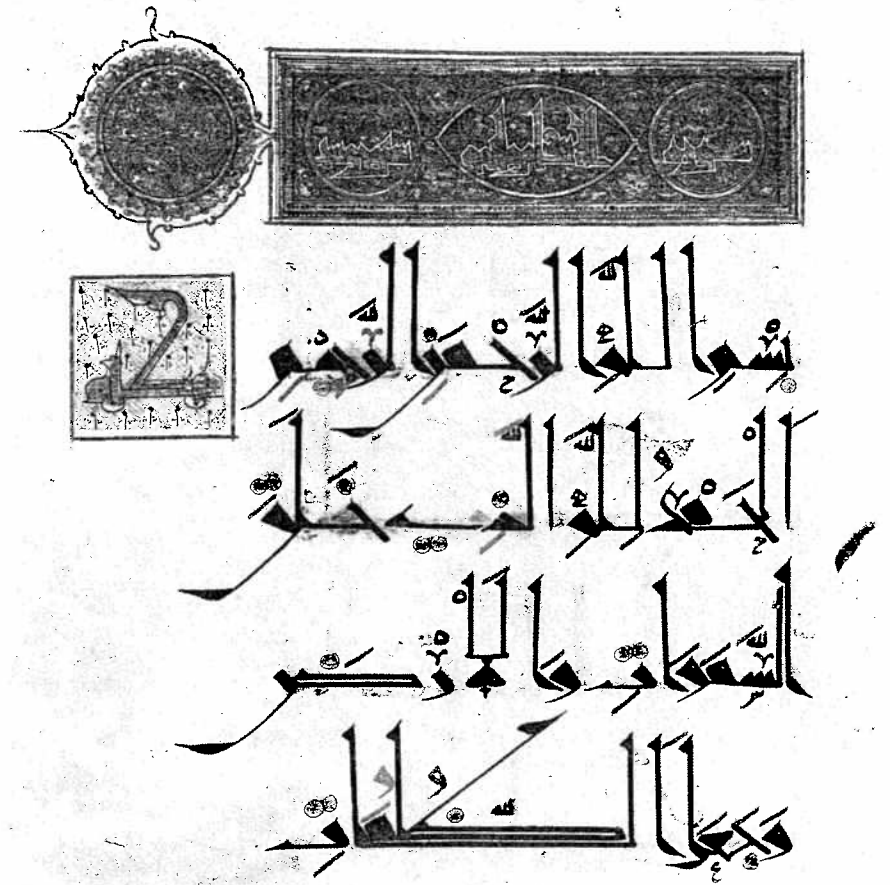 بسم الله الرحمن الرحيم
الحمد لله الذى خلق
السموت والارض
وجعل الظلمت